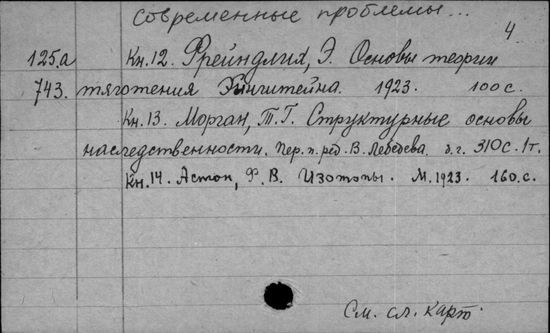 Современные проблемы...
4
125.а Кн.12. Фрейндлих, Э. Основы теории
743. тяготения Эйнштейна. 1923. 100 с.
Кн.13. Морган, Т.Г. Структурные основы
наследственности. Пер. п. ред. В. Лебедева. б.г. 310 с. 1т.
Кн.14. Астон, Ф. В. Изотопы. М. 1923. 160.с.
См. сл. карт.